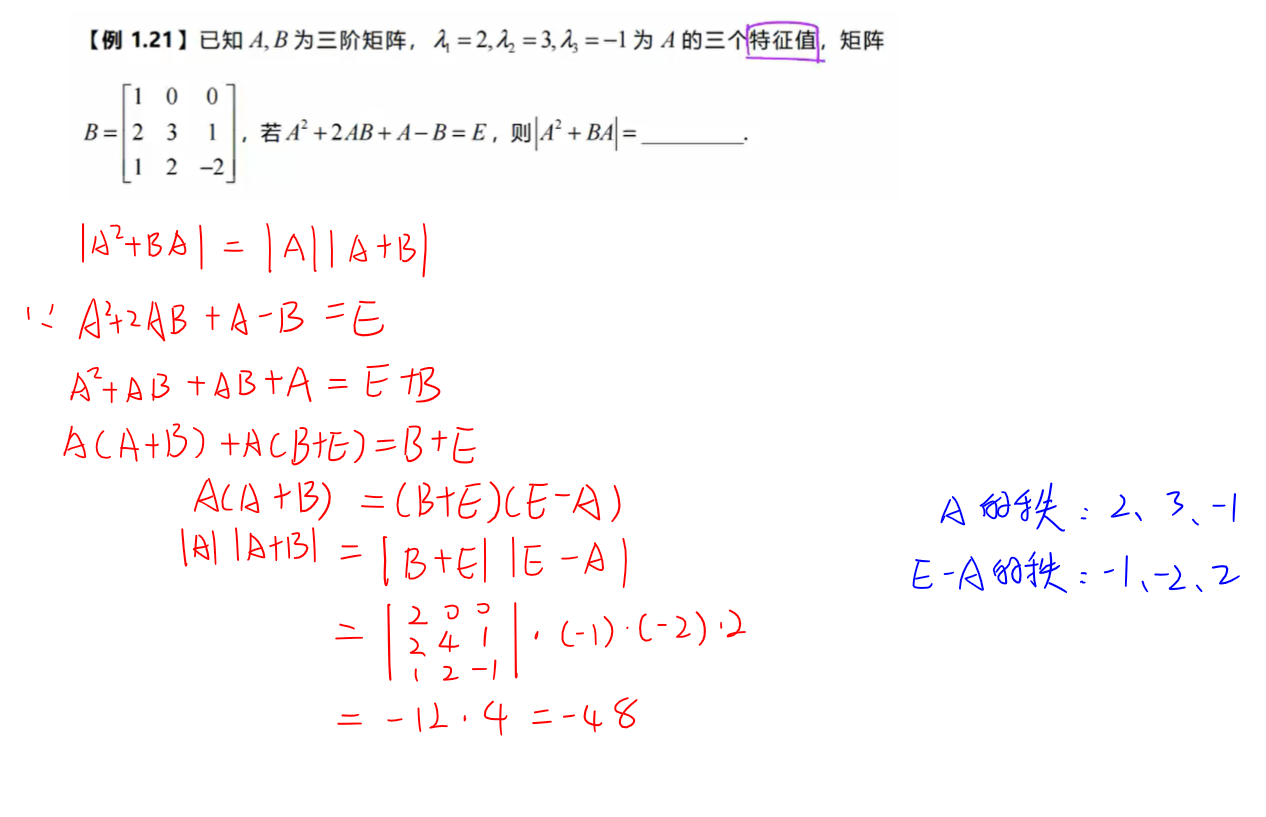 【例 1.21】已知 A, B 为三阶矩阵，λ₁ = 2, λ₂ = 3, λ₃ = −1 为 A 的三个特征值，矩阵
B = [1 0 0; 2 3 1; 1 2 −2]，若 A² + 2AB + A − B = E，则|A² + BA| = ________.
|A²+BA| = |A||A+B|
∵ A²+2AB+A−B = E
A²+AB+AB+A = E+B
A(A+B)+A(B+E)=B+E
A(A+B) = (B+E)(E−A)
A的秩：2、3、-1
|A||A+B| = |B+E||E−A|
E-A的秩：-1、-2、2
= |2 0 0; 2 4 1; 1 2 −1|·(-1)·(-2)·2
= -12·4 = -48